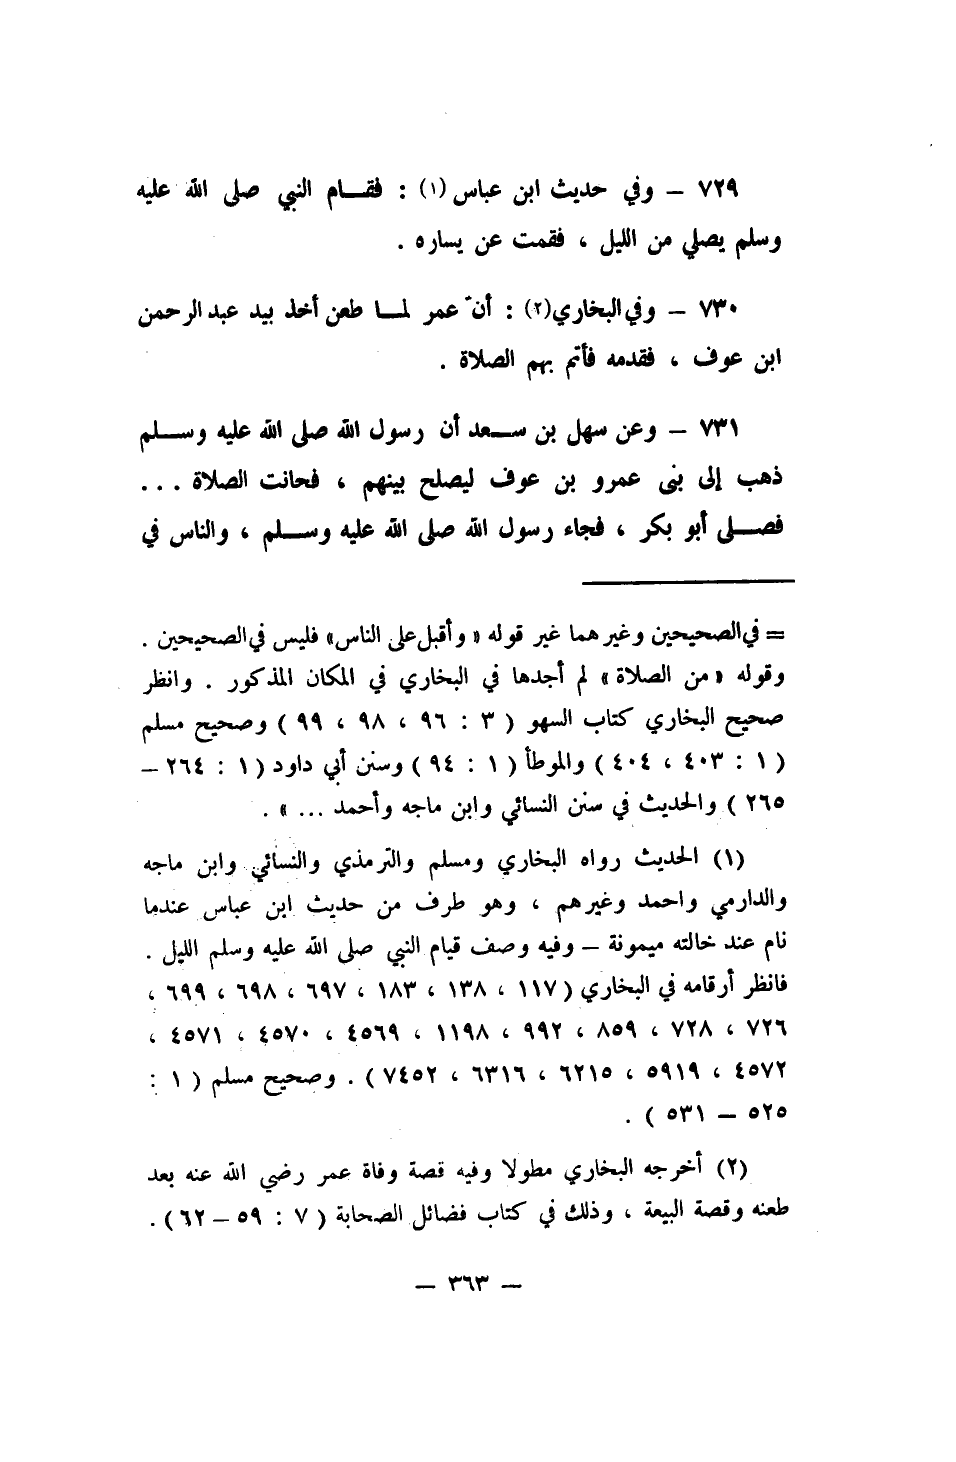 ٧٢٩ – وفي حديث ابن عباس (١) : فقـــام النبي صلى الله عليه
وسلم يصلي من الليل ، فقمت عن يساره .
٧٣٠ – وفي البخاري(٢) : أنّ عمر لمـــا طعن أخذ بيد عبد الرحمن
ابن عوف ، فقدمه فأتم بهم الصلاة .
٧٣١ – وعن سهل بن ســعد أن رسول الله صلى الله عليه وســلم
ذهب إلى بنى عمرو بن عوف ليصلح بينهم ، فحانت الصلاة ...
فصــلى أبو بكر ، فجاء رسول الله صلى الله عليه وســلم ، والناس في
= في الصحيحين وغيرهما غير قوله « وأقبل على الناس» فليس في الصحيحين .
وقوله «من الصلاة» لم أجدها في البخاري في المكان المذكور . وانظر
صحيح البخاري كتاب السهو ( ٣ : ٩٦ ، ٩٨ ، ٩٩ ) وصحيح مسلم
( ١ : ٤٠٣ ، ٤٠٤ ) والموطأ ( ١ : ٩٤ ) وسنن أبي داود ( ١ : ٢٦٤ –
٢٦٥ ) والحديث في سنن النسائي وابن ماجه وأحمد ... » .
(١) الحديث رواه البخاري ومسلم والترمذي والنسائي وابن ماجه
والدارمي واحمد وغيرهم ، وهو طرف من حديث ابن عباس عندما
نام عند خالته ميمونة – وفيه وصف قيام النبي صلى الله عليه وسلم الليل .
فانظر أرقامه في البخاري ( ١١٧ ، ١٣٨ ، ١٨٣ ، ٦٩٧ ، ٦٩٨ ، ٦٩٩ ،
٧٢٦ ، ٧٢٨ ، ٨٥٩ ، ٩٩٢ ، ١١٩٨ ، ٤٥٦٩ ، ٤٥٧٠ ، ٤٥٧١ ،
٤٥٧٢ ، ٥٩١٩ ، ٦٢١٥ ، ٦٣١٦ ، ٧٤٥٢ ) . وصحيح مسلم ( ١ :
٥٢٥ – ٥٣١ ) .
(٢) أخرجه البخاري مطولا وفيه قصة وفاة عمر رضي الله عنه بعد
طعنه وقصة البيعة ، وذلك في كتاب فضائل الصحابة ( ٧ : ٥٩ – ٦٢ ) .
– ٣٦٣ –